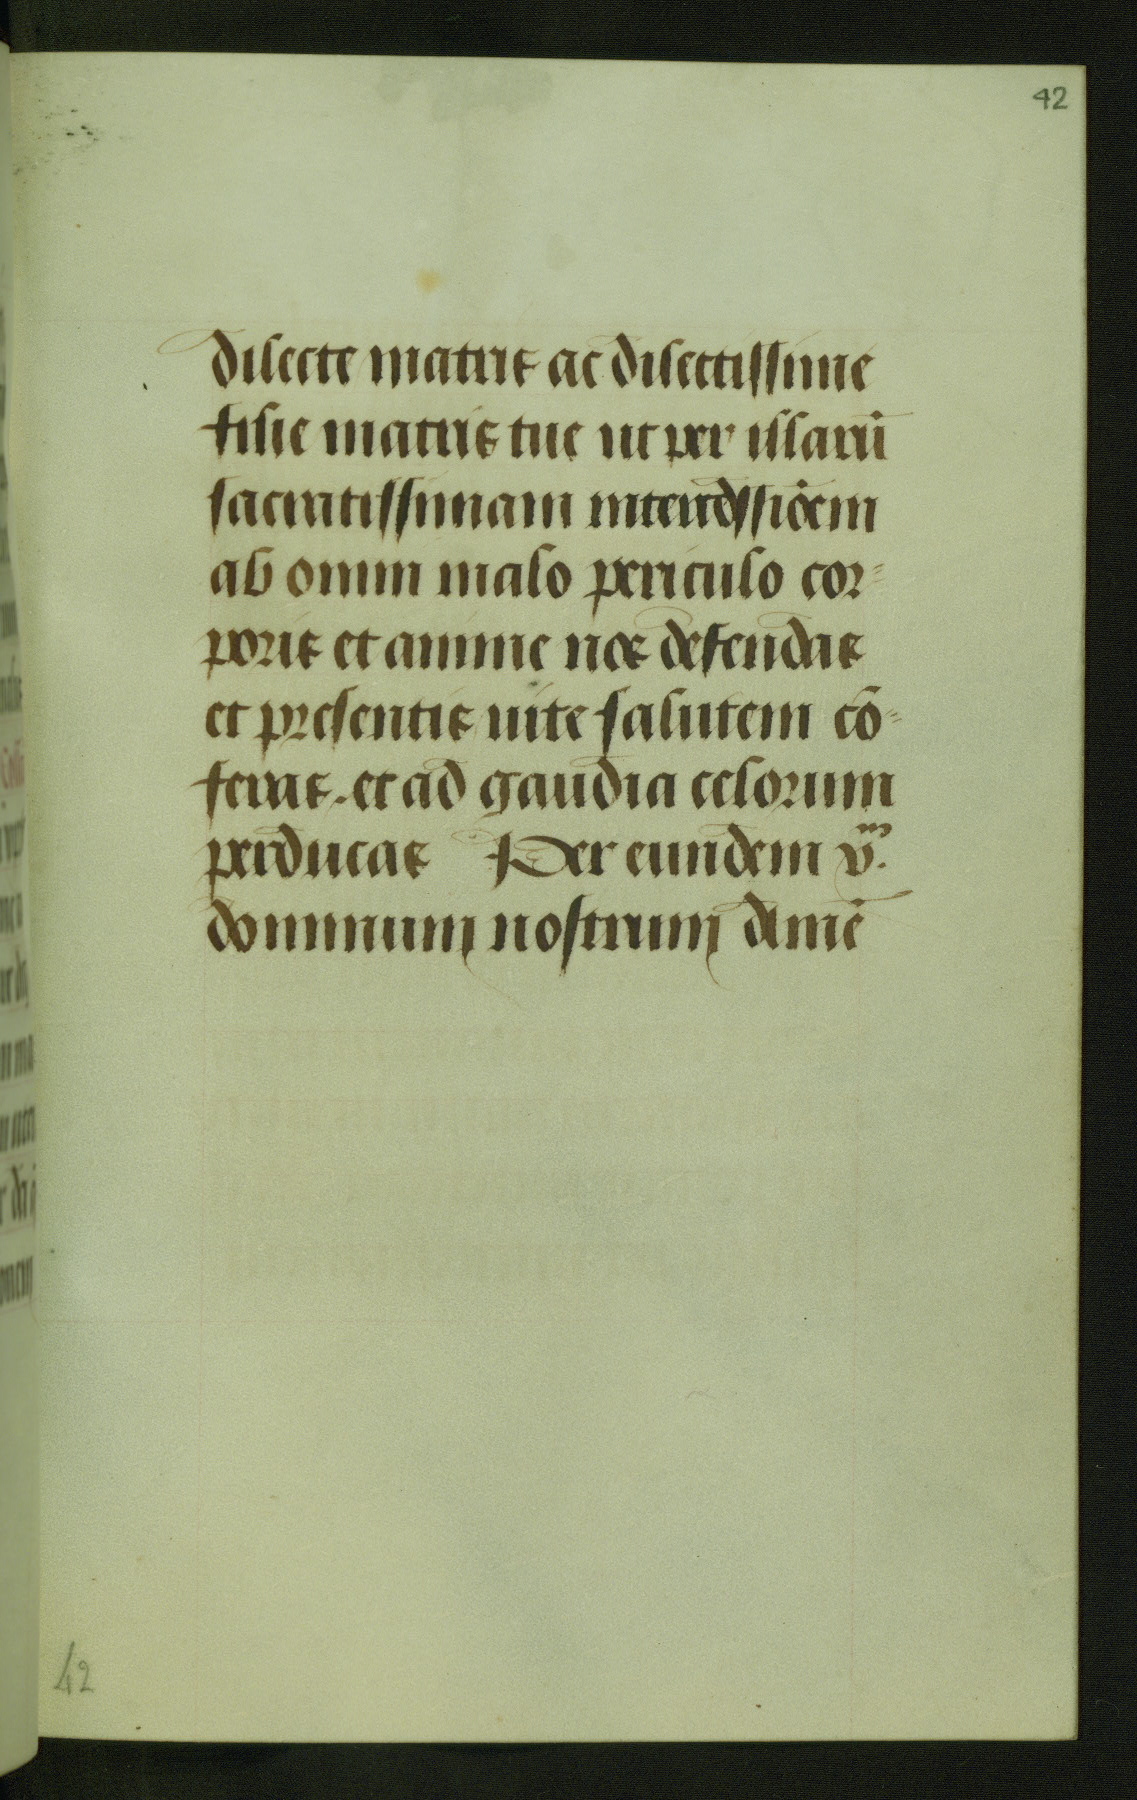 42
dilecte matris ac dilectissime
filie matris tue ut per illarū
sacratissimam intercessiōem
ab omni malo periculo cor=
poris et anime nos defendas
et presentis uite salutem cō=
feras. et ad gaudia celorum
perducas Per eundem
dominum nostrum Amē
42